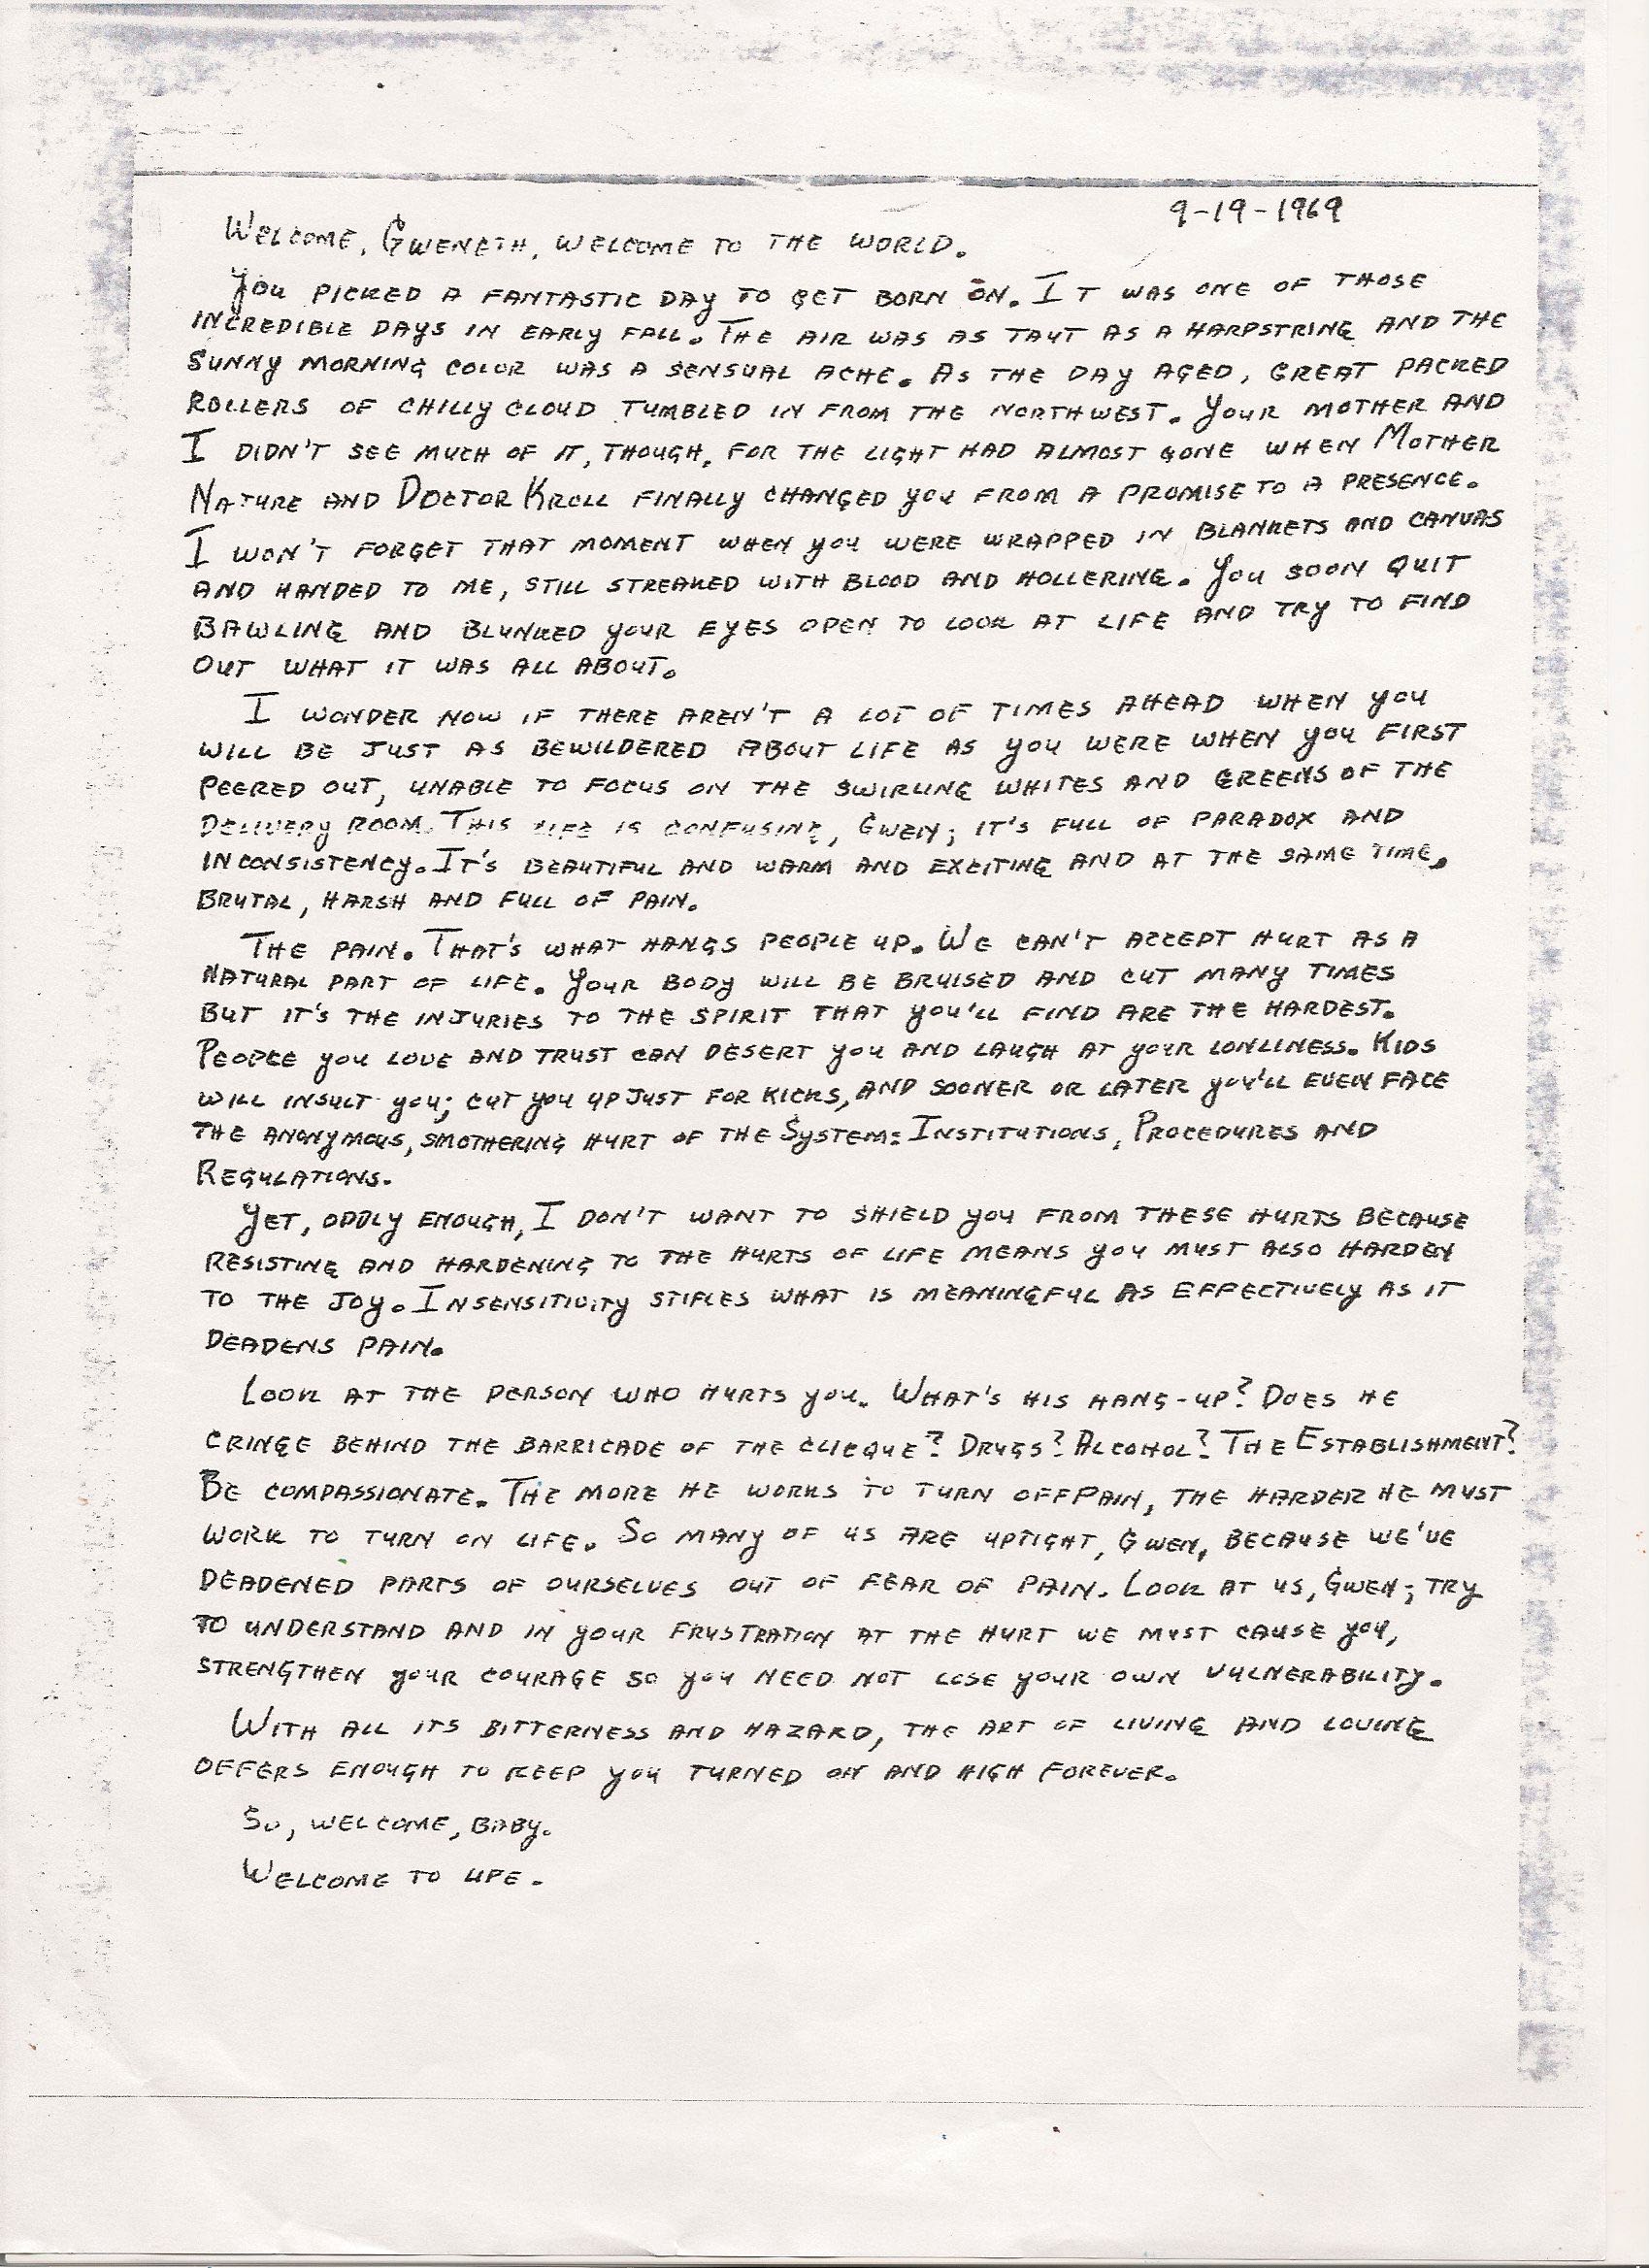 9-19-1969
Welcome, Gweneth, welcome to the world.
You picked a fantastic day to get born on. It was one of those
incredible days in early fall. The air was as taut as a harpstring and the
sunny morning color was a sensual ache. As the day aged, great packed
rollers of chilly cloud tumbled in from the northwest. Your mother and
I didn't see much of it, though, for the light had almost gone when Mother
Nature and Doctor Kroll finally changed you from a promise to a presence.
I won't forget that moment when you were wrapped in blankets and canvas
and handed to me, still streaked with blood and hollering. You soon quit
bawling and blunked your eyes open to look at life and try to find
out what it was all about.
I wonder now if there aren't a lot of times ahead when you
will be just as bewildered about life as you were when you first
peered out, unable to focus on the swirling whites and greens of the
delivery room. This life is confusing, Gwen; it's full of paradox and
inconsistency. It's beautiful and warm and exciting and at the same time,
brutal, harsh and full of pain.
The pain. That's what hangs people up. We can't accept hurt as a
natural part of life. Your body will be bruised and cut many times
but it's the injuries to the spirit that you'll find are the hardest.
People you love and trust can desert you and laugh at your lonliness. Kids
will insult you; cut you up just for kicks, and sooner or later you'll even face
the anonymous, smothering hurt of the System: Institutions, Procedures and
Regulations.
Yet, oddly enough, I don't want to shield you from these hurts because
resisting and hardening to the hurts of life means you must also harden
to the joy. Insensitivity stifles what is meaningful as effectively as it
deadens pain.
Look at the person who hurts you. What's his hang-up? Does he
cringe behind the barricade of the clicque? Drugs? Alcohol? The Establishment?
Be compassionate. The more he works to turn off pain, the harder he must
work to turn on life. So many of us are uptight, Gwen, because we've
deadened parts of ourselves out of fear of pain. Look at us, Gwen; try
to understand and in your frustration at the hurt we must cause you,
strengthen your courage so you need not lose your own vulnerability.
With all its bitterness and hazard, the art of living and loving
offers enough to keep you turned on and high forever.
So, welcome, baby.
Welcome to life.